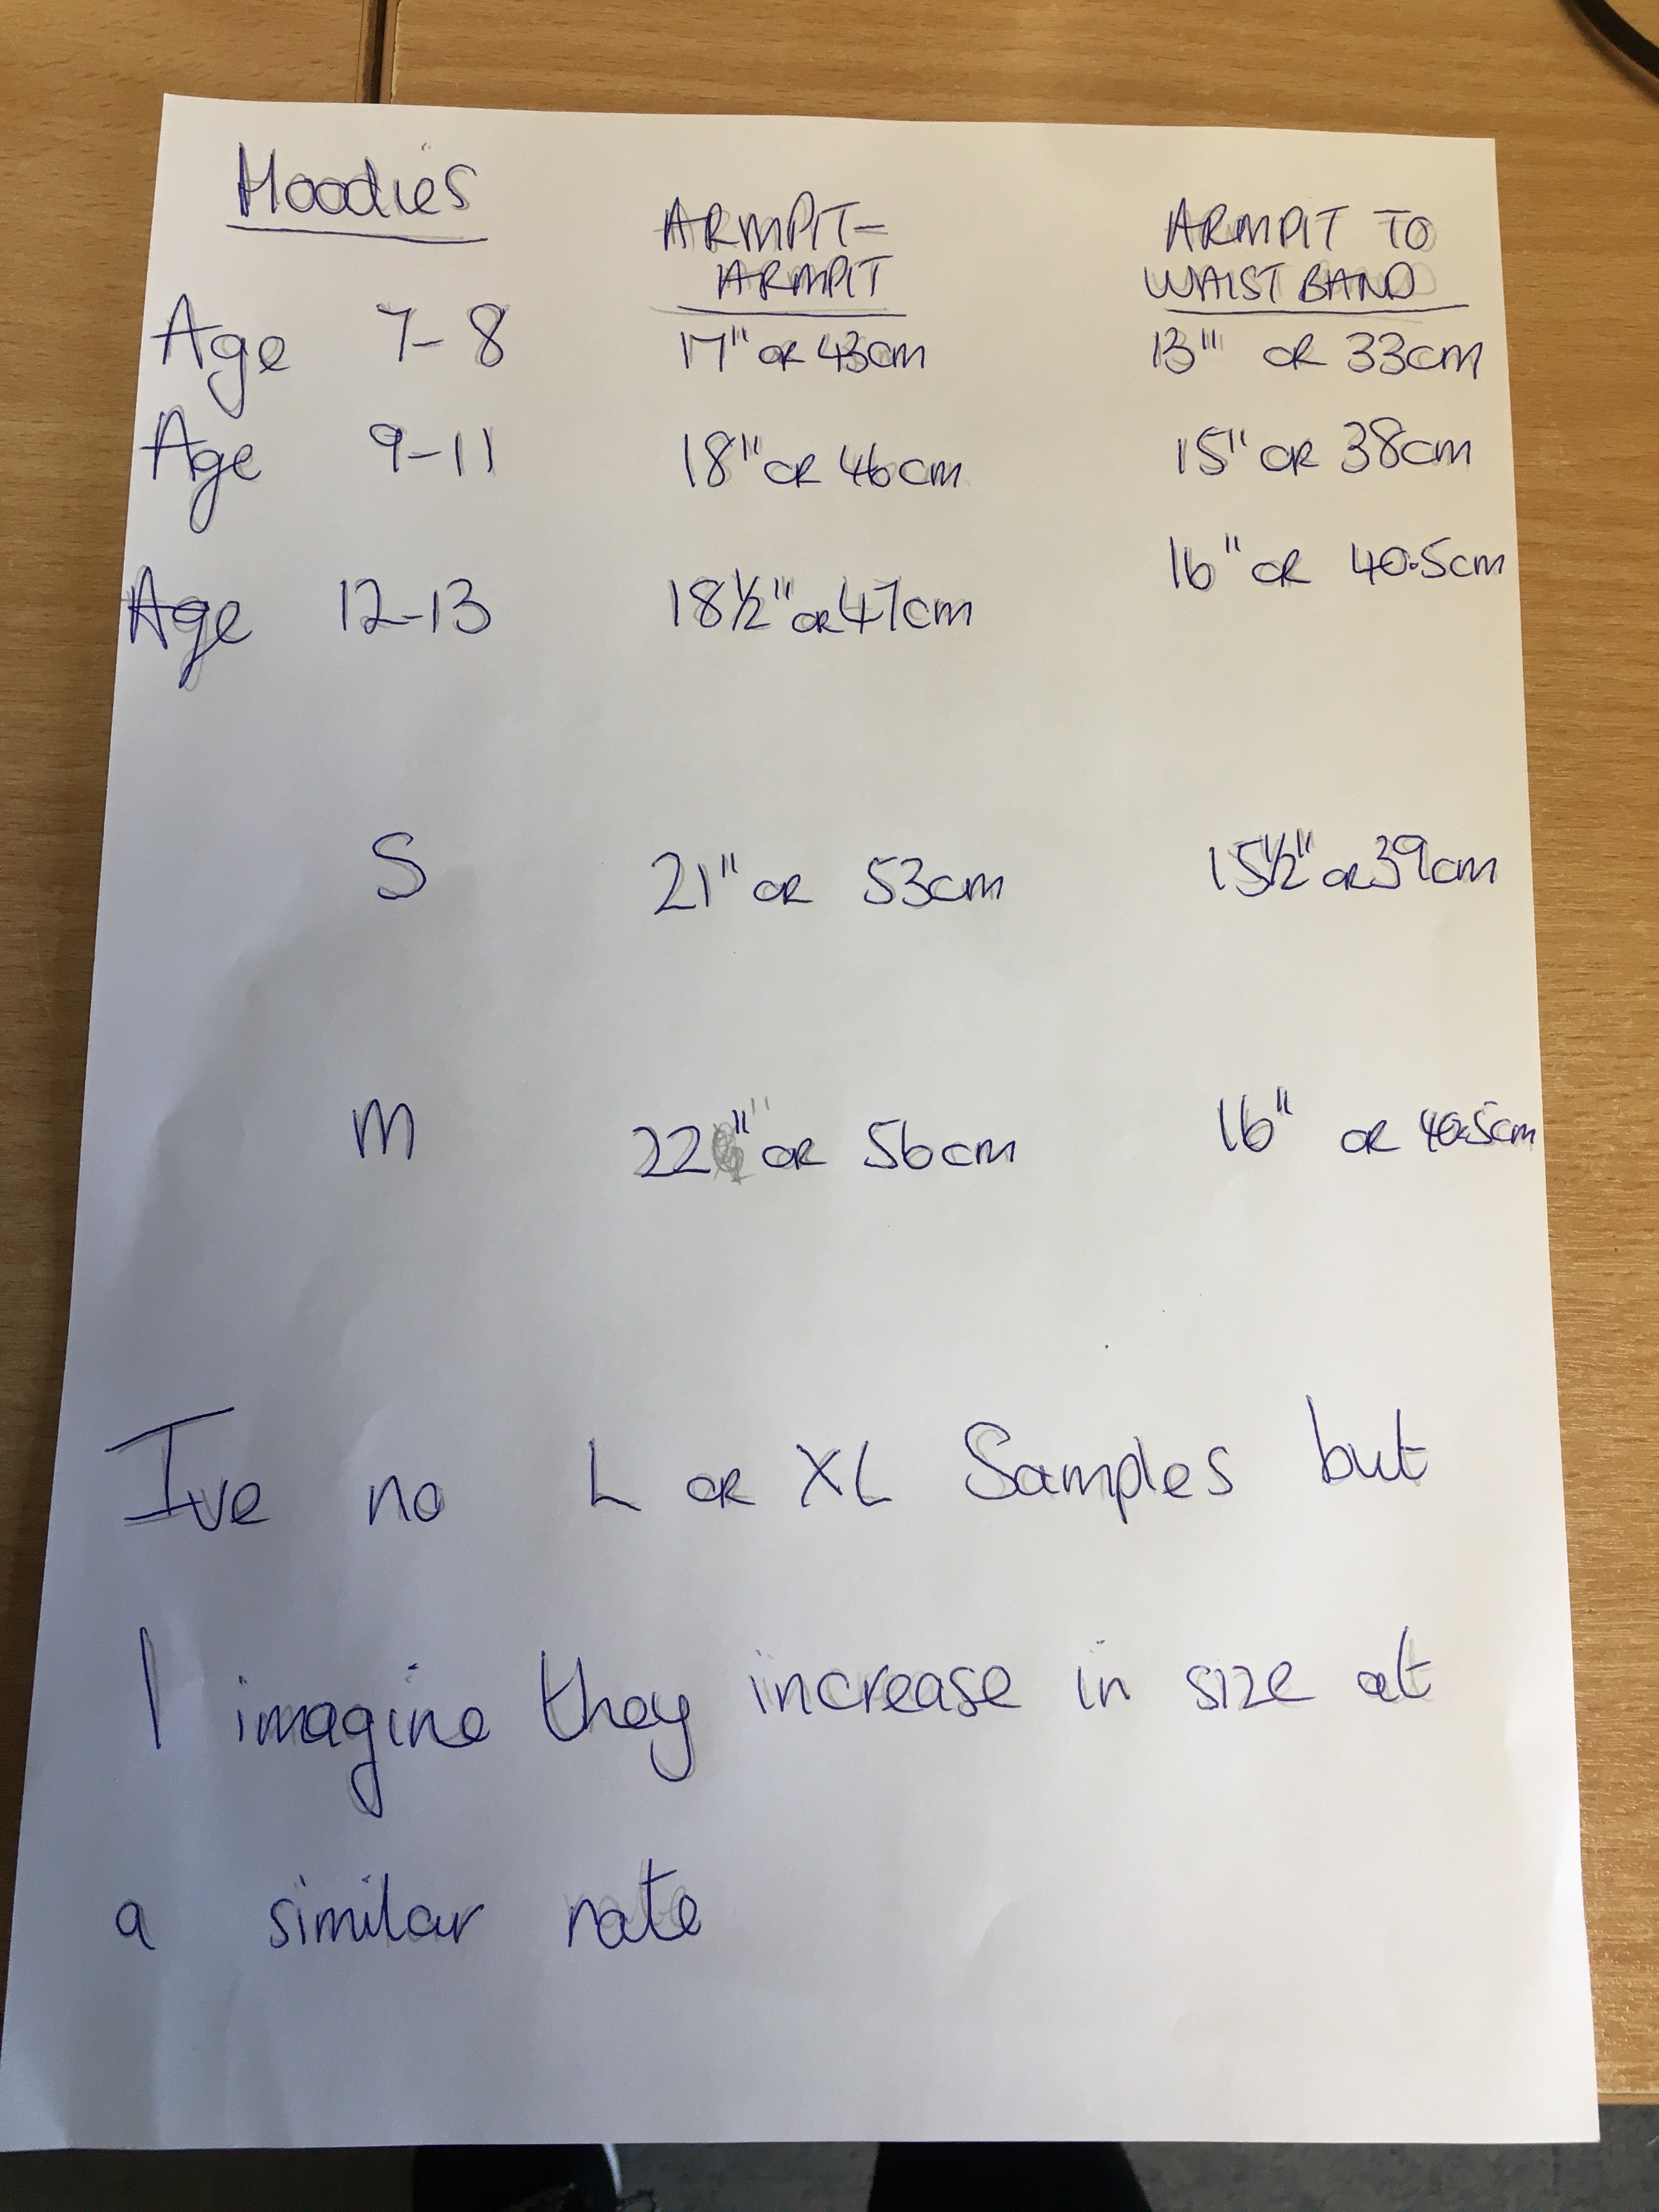 Hoodies
ARMPIT-
ARMPIT
ARMPIT TO
WAISTBAND
Age 7-8 17" OR 43cm 13" OR 33cm
Age 9-11 18" OR 46cm 15" OR 38cm
Age 12-13 18½" OR 47cm 16" OR 40.5cm
S 21" OR 53cm 15½" OR 39cm
M 22" OR 56cm 16" OR 40.5cm
Ive no L OR XL Samples but
I imagine they increase in size at
a similar rate